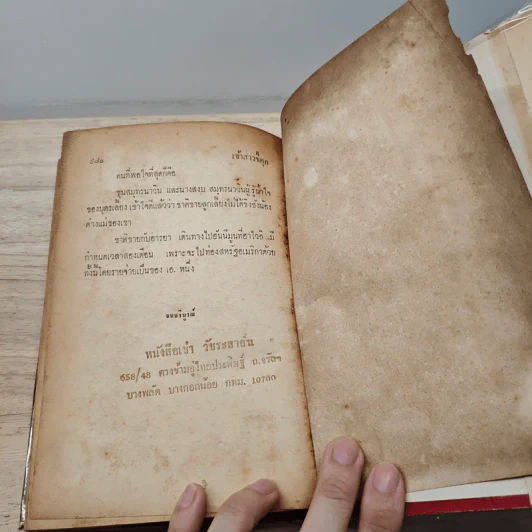 เจ้าสาวขัดดุก
คนที่พอใจที่สุดก็คือ
ขุนสมุทรนาวิน และนางสงบ สมุทรนาวินผู้รู้น้ำใจ
ของบุตรเลี้ยง เข้าใจดีแล้วว่า ชาติชายลูกเลี้ยงไม่ได้ชิงชังน้อง
ต่างแม่ของเขา
ชาติชายกับอารยา เดินทางไปฮันนีมูนที่ฮาไวอิ มี
กำหนดเวลาสองเดือน เพราะจะไปท่องสหรัฐอเมริกาด้วย
ทั้งนี้โดยรายจ่ายเป็นของ เอ. หนึ่ง
จบบริบูรณ์
หนังสือเช่า วัชระสาส์น
658/48 ตรงข้ามอู่ไทยประดิษฐ์ ถ.จรัลฯ
บางพลัด บางกอกน้อย กทม. 10700